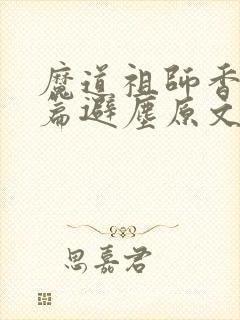 魔道祖師香
篇避塵原文
思嘉君